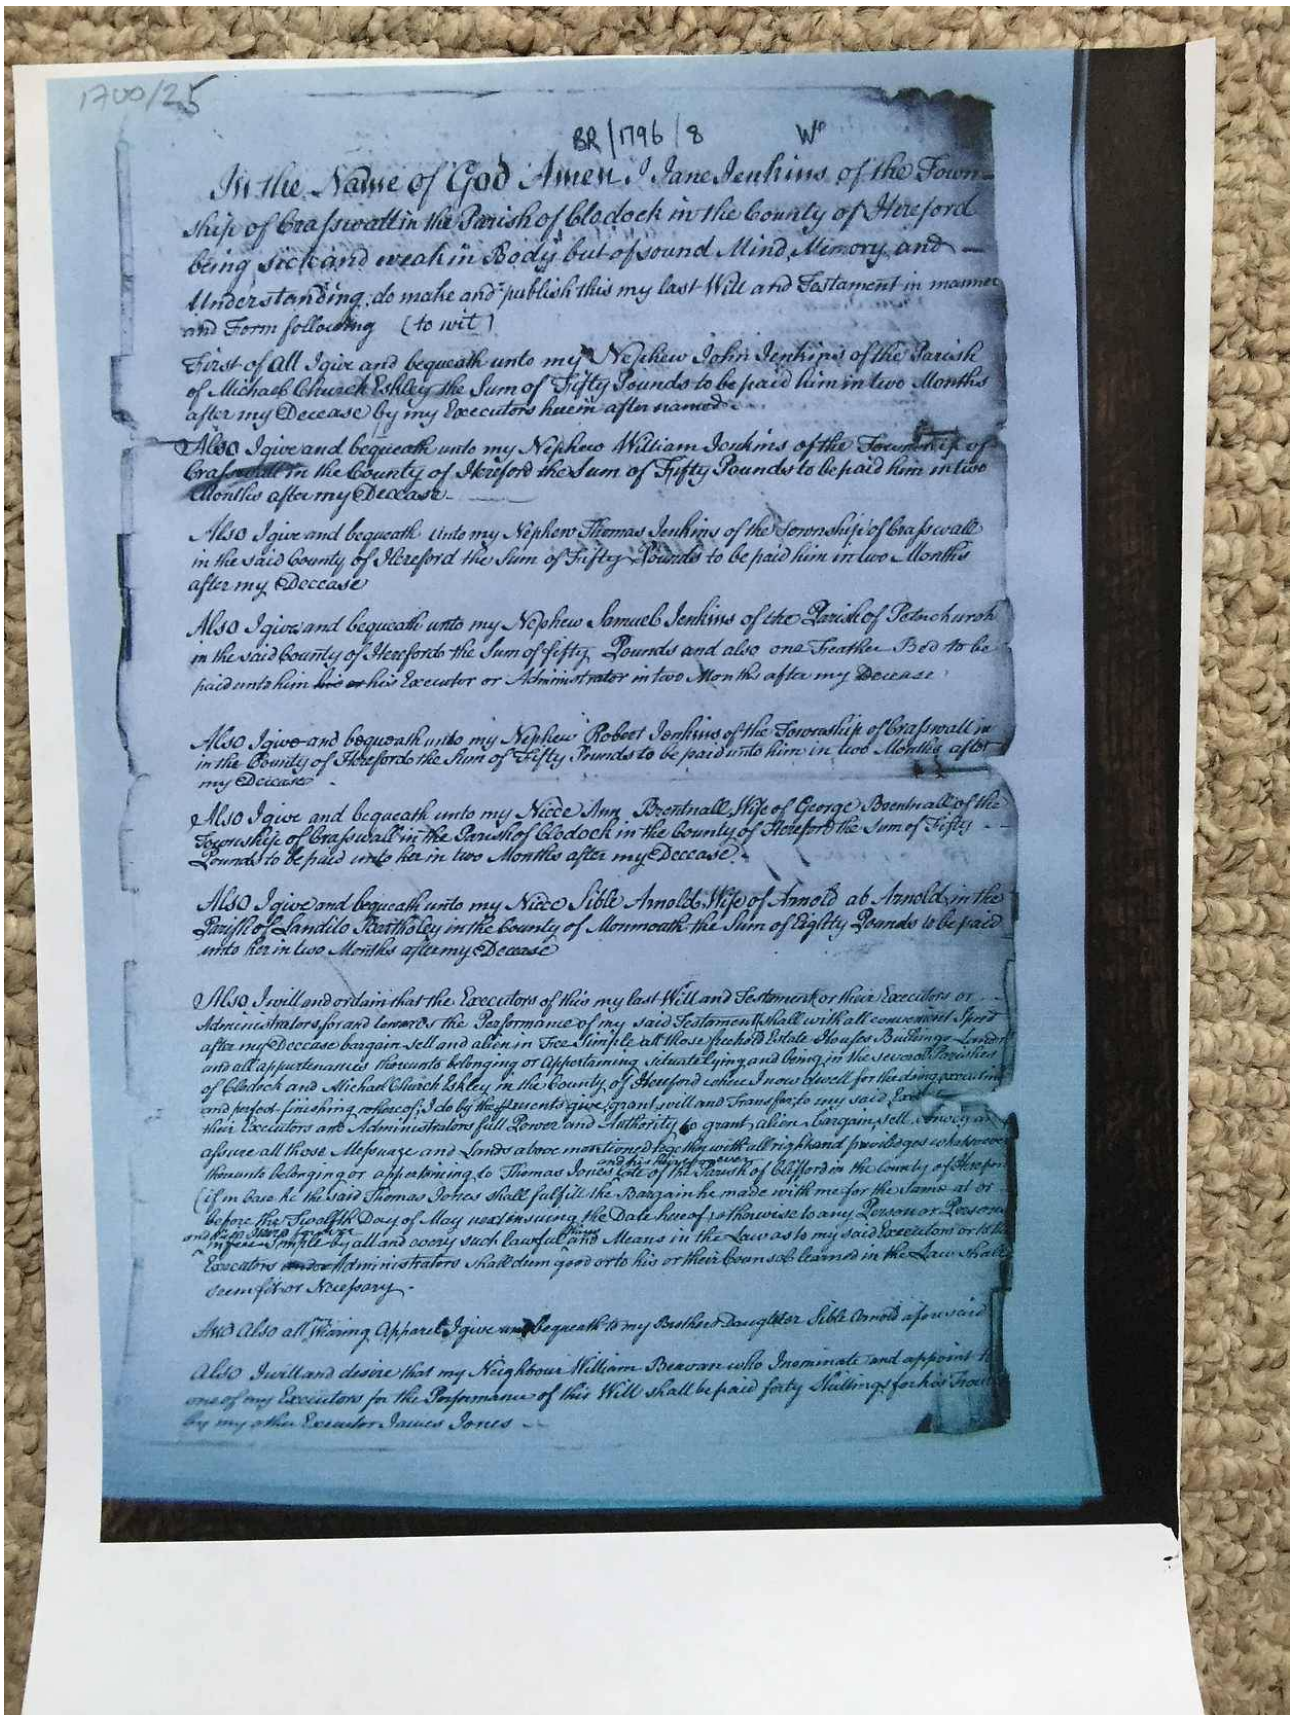 1700/25
BR/1796/8 Wp
In the Name of God Amen I Jane Jenkins of the Town-
ship of Crasswall in the Parish of Clodock in the County of Hereford
being sick and weak in Body but of sound Mind Memory and
Understanding do make and publish this my last Will and Testament in manner
and Form following (to wit)
First of All I give and bequeath unto my Nephew John Jenkins of the Parish
of Michael Church Eskley the Sum of Fifty Pounds to be paid him in two Months
after my Decease by my Executors herein after named
Also I give and bequeath unto my Nephew William Jenkins of the Township of
Crasswall in the County of Hereford the Sum of Fifty Pounds to be paid him in two
Months after my Decease
Also I give and bequeath unto my Nephew Thomas Jenkins of the Township of Crasswall
in the said County of Hereford the Sum of Fifty Pounds to be paid him in two Months
after my Decease
Also I give and bequeath unto my Nephew Samuel Jenkins of the Parish of Peterchurch
in the said County of Hereford the Sum of fifty Pounds and also one Feather Bed to be
paid unto him his or his Executor or Administrator in two Months after my Decease
Also I give and bequeath unto my Nephew Robert Jenkins of the Township of Crasswall in
in the County of Hereford the Sum of Fifty Pounds to be paid unto him in two Months after
my Decease
Also I give and bequeath unto my Niece Ann Brentnall Wife of George Brentnall of the
Township of Crasswall in the Parish of Clodock in the County of Hereford the Sum of Fifty
Pounds to be paid unto her in two Months after my Decease
Also I give and bequeath unto my Niece Sible Arnold Wife of Arnold ab Arnold in the
Parish of Landilo Bartholey in the County of Monmouth the Sum of Eighty Pounds to be paid
unto her in two Months after my Decease
Also I will and ordain that the Executors of this my last Will and Testament or their Executors or
Administrators for and towards the Performance of my said Testament shall with all convenient Speed
after my Decease bargain sell and alien in Fee Simple all those freehold Estate Houses Buildings Lands
and all appurtenances thereunto belonging or Appertaining situate lying and being in the several Parishes
of Clodock and Michael Church Eskley in the County of Hereford where I now dwell for the doing executing
and perfect finishing whereof I do by these presents give grant will and Transfer to my said
their Executors and Administrators full Power and Authority to grant alien bargain sell
assure all those Messuage and Lands above mentioned together with all right and priviledges whatsoever
thereunto belonging or appertaining to Thomas Jones and his Heirs for ever late of the Parish of Clifford in the County of Hereford
(if in Case he the said Thomas Jones shall fulfill the Bargain he made with me for the same at or
before the Twelfth Day of May next insuing the Date hereof otherwise to any Person or Persons
and their Heirs for ever in Fee Simple by all and every such lawful Ways and Means in the Law as to my said Executors or to their
Executors Administrators shall deem good or to his or their Counsel learned in the Law shall
seem fit or Necessary
And Also all my Waring Apparel I give and bequeath to my Brothers Daughter Sible Arnold aforesaid
Also I will and desire that my Neighbour William Beavan who I nominate and appoint to
one of my Executors for the Performance of this Will shall be paid forty Shillings for his
by my other Executor James Jones